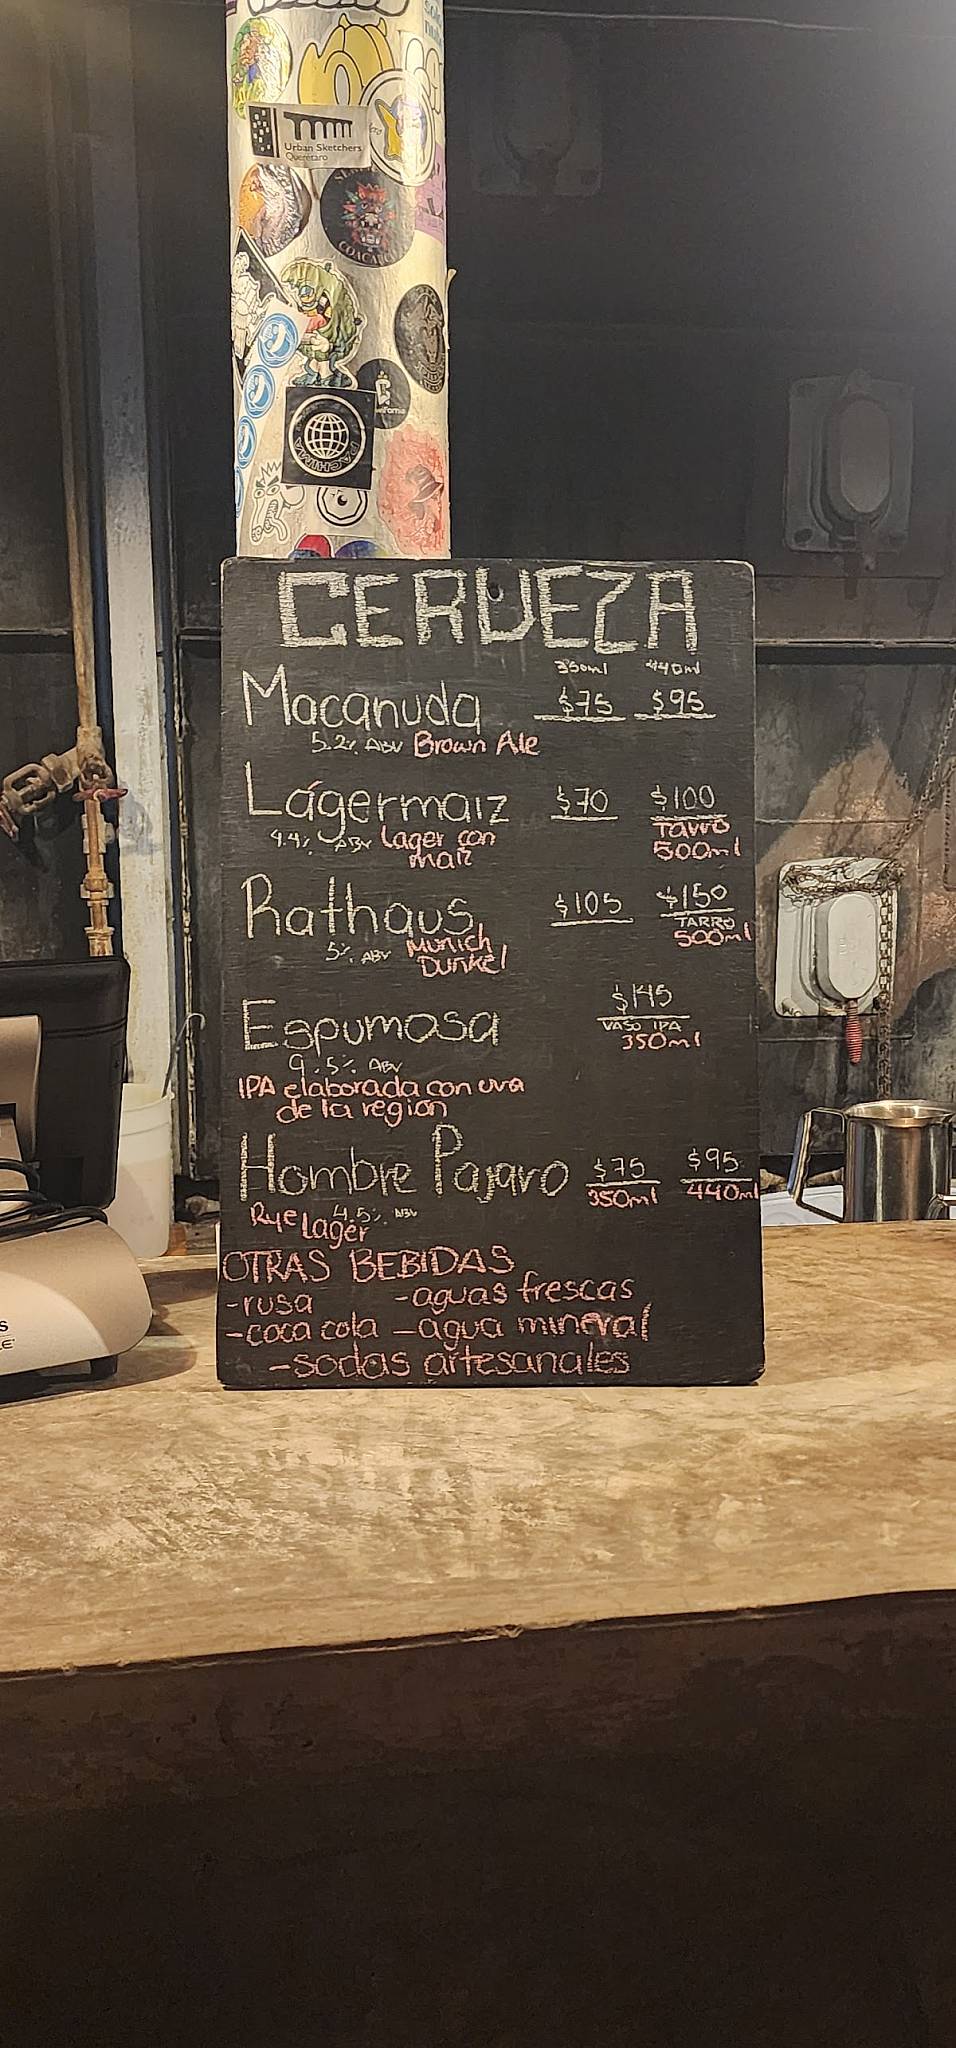 Urban Sketchers
Querétaro
COACALCO
PACHIMA
CERVEZA
350ml 440ml
Macanuda $75 $95
5.2% ABV Brown Ale
Lágermaiz $70 $100
4.4% ABV Lager con Tarro
maiz 500ml
Rathaus $105 $150
TARRO
5% ABV Munich 500ml
Dunkel
Espumosa $145
VASO IPA
9.5% ABV 350ml
IPA elaborada con uva
de la región
Hombre Pajaro $75 $95
350ml 440ml
Rye Lager 4.5% ABV
OTRAS BEBIDAS
-rusa -aguas frescas
-coca cola -agua mineral
-sodas artesanales